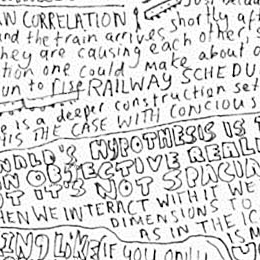 AN CORRELATION shortly aft
and the train arrives
they are causing each other, s
tion one could make about a
un to rise RAILWAY SCHEDU
e is a deeper construction set
HIS THE CASE WITH CONCIOUS
NALD'S HYPOTHESIS IS T
N OBJECTIVE REALI
T IT'S NOT SPACIA
HEN WE INTERACT WITH IT WE
DIMENSIONS TO
AS IN THE IC
IND LIKE (IF YOU ONLY